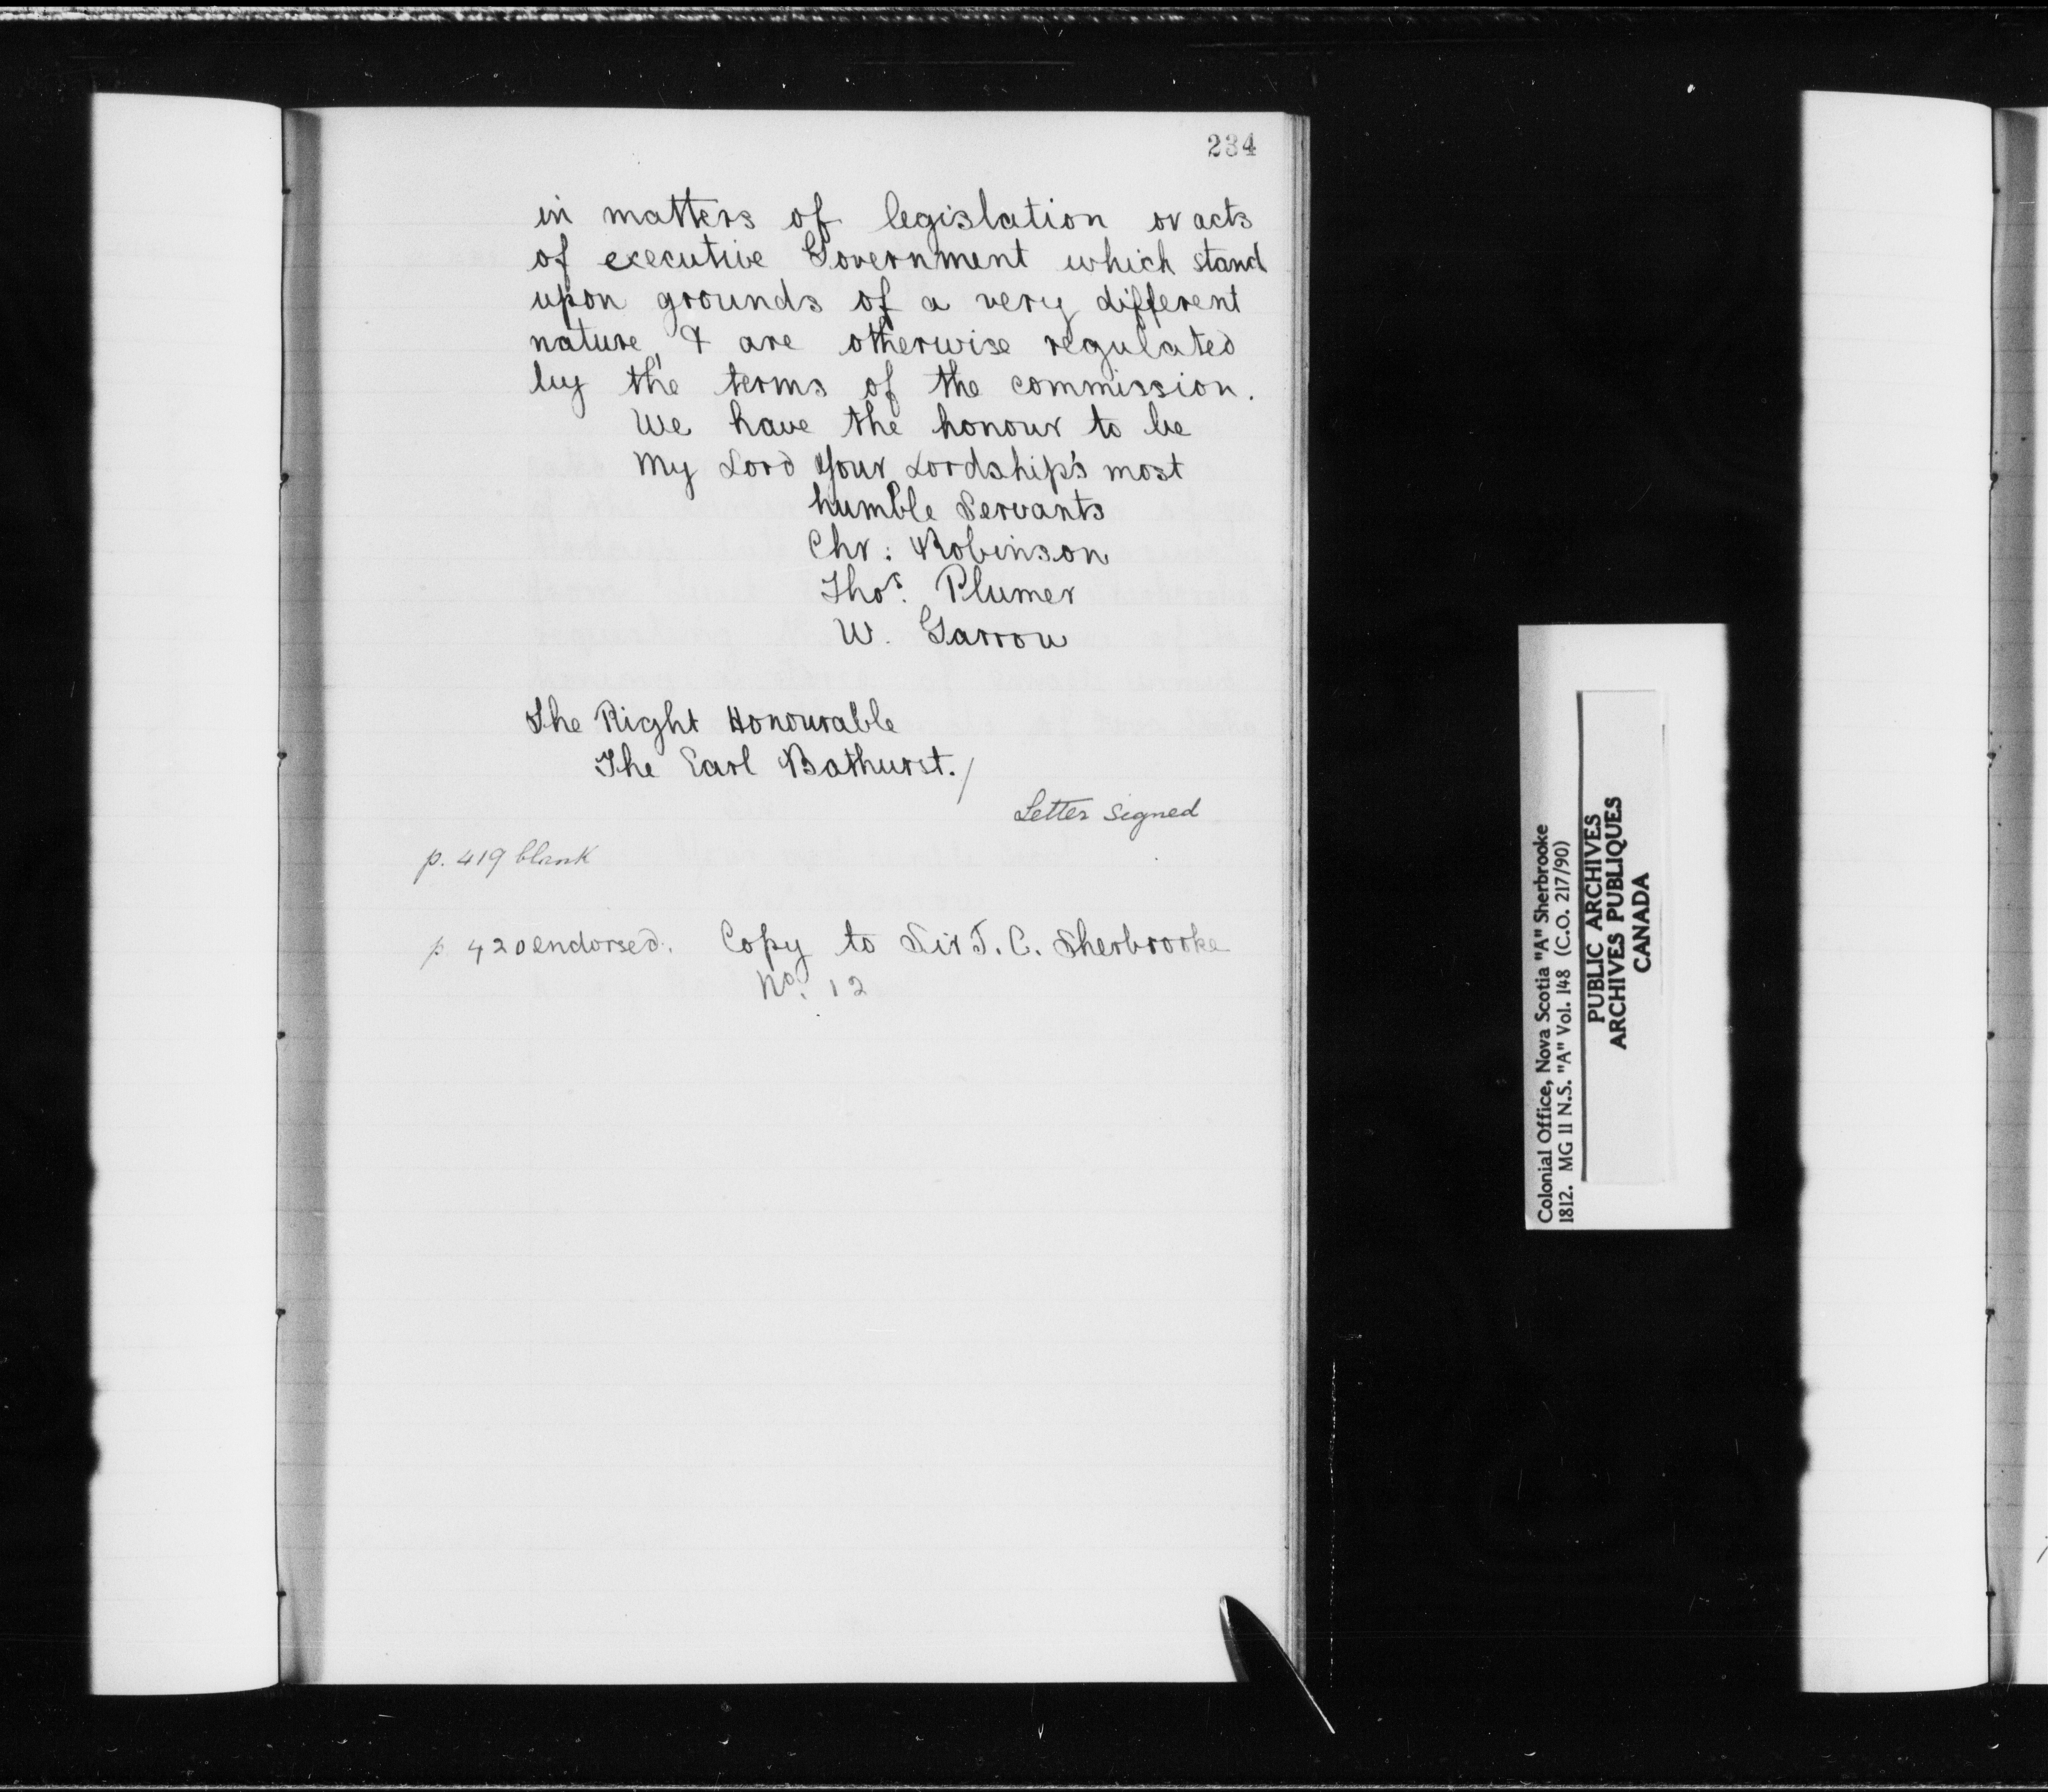 234
in matters of legislation or acts
of executive Government which stand
upon grounds of a very different
nature, & are otherwise regulated
by the terms of the commission.
We have the honour to be
My Lord Your Lordship's most
humble Servants
Chr: Robinson
Thos. Plumer
W. Garrow
The Right Honourable
The Earl Bathurst./
Letter signed
p. 419 blank
p. 420 endorsed. Copy to Sir J. C. Sherbrooke
No. 12
Colonial Office, Nova Scotia "A" Sherbrooke
1812. MG 11 N.S. "A" Vol. 148 (C.O. 217/90)
PUBLIC ARCHIVES
ARCHIVES PUBLIQUES
CANADA